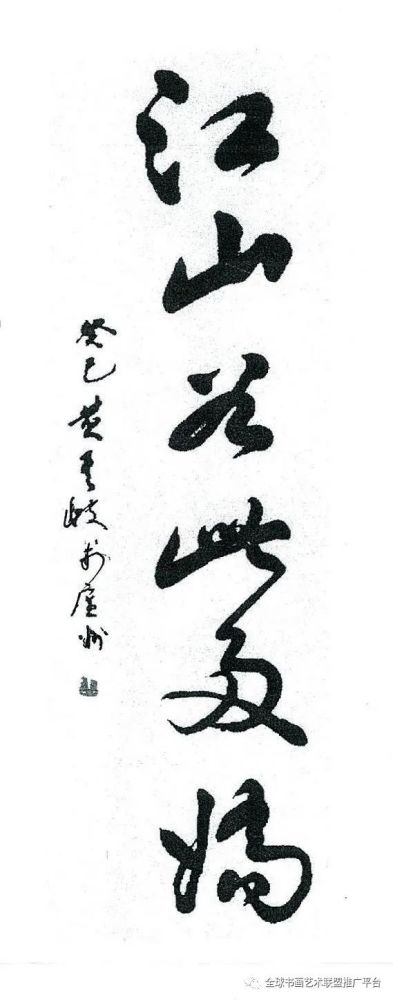 江山如此多嬌
癸巳黄岐於廬州
全球书画艺术联盟推广平台